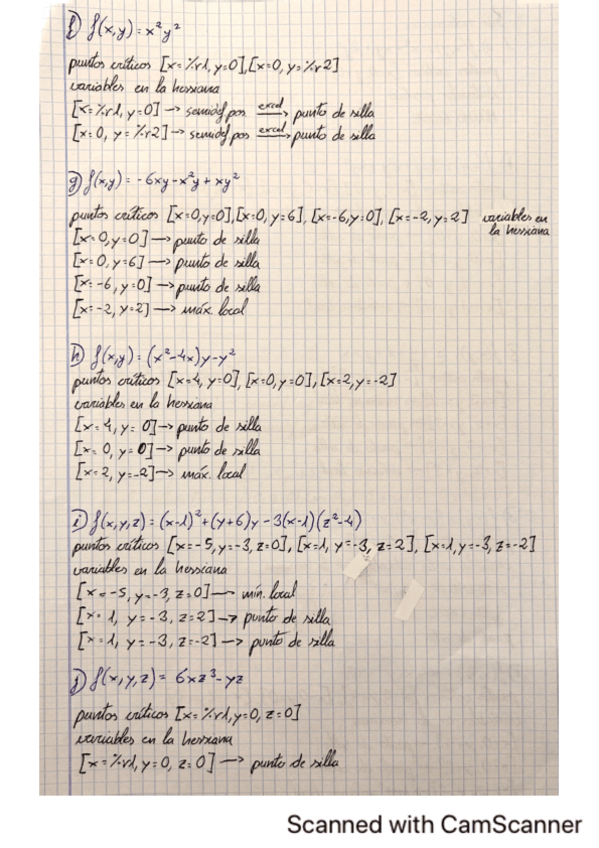 f) f(x,y) = x²y²
puntos críticos [x=%r1, y=0], [x=0, y=%r2]
variables en la hessiana
[x=%r1, y=0] → semidef pos excel→ punto de silla
[x=0, y=%r2] → semidef pos excel→ punto de silla
g) f(x,y) = -6xy-x²y+xy²
puntos críticos [x=0,y=0], [x=0, y=6], [x=-6,y=0], [x=-2, y=2] variables en
la hessiana
[x=0, y=0] → punto de silla
[x=0, y=6] → punto de silla
[x=-6, y=0] → punto de silla
[x=-2, y=2] → máx. local
h) f(x,y) = (x²-4x)y-y²
puntos críticos [x=4, y=0], [x=0, y=0], [x=2, y=-2]
variables en la hessiana
[x=4, y=0] → punto de silla
[x=0, y=0] → punto de silla
[x=2, y=-2] → máx. local
i) f(x,y,z) = (x-1)²+(y+6)y-3(x-1)(z²-4)
puntos críticos [x=-5, y=-3, z=0], [x=1, y=-3, z=2], [x=1, y=-3, z=-2]
variables en la hessiana
[x=-5, y=-3, z=0] → mín. local
[x=1, y=-3, z=2] → punto de silla
[x=1, y=-3, z=-2] → punto de silla
j) f(x,y,z) = 6xz³-yz
puntos críticos [x=%r1, y=0, z=0]
variables en la hessiana
[x=%r1, y=0, z=0] → punto de silla
Scanned with CamScanner